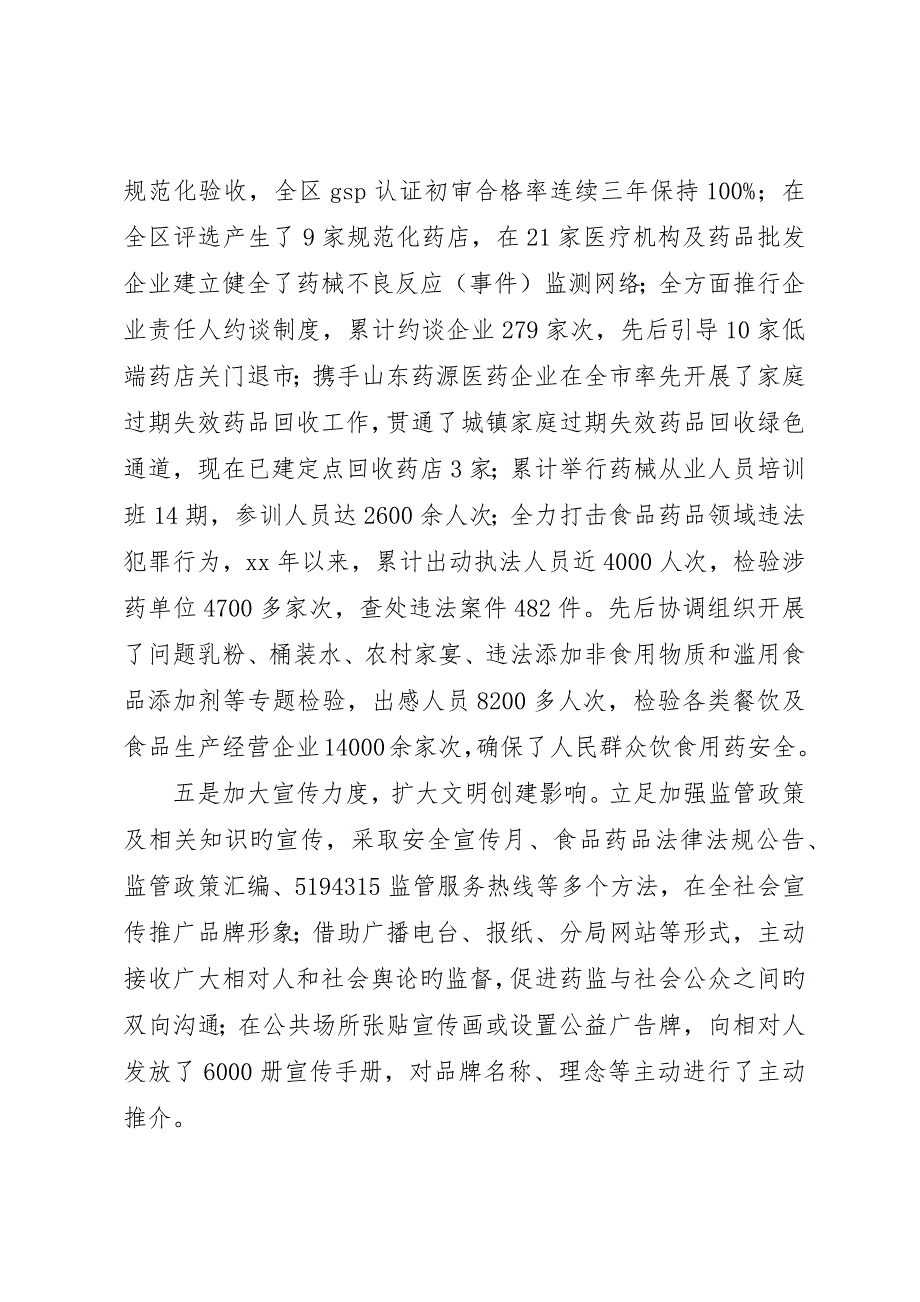 规范化验收，全区 gsp 认证初审合格率连续三年保持 100%；在
全区评选产生了 9 家规范化药店，在 21 家医疗机构及药品批发
企业建立健全了药械不良反应（事件）监测网络；全方面推行企
业责任人约谈制度，累计约谈企业 279 家次，先后引导 10 家低
端药店关门退市；携手山东药源医药企业在全市率先开展了家庭
过期失效药品回收工作，贯通了城镇家庭过期失效药品回收绿色
通道，现在已建定点回收药店 3 家；累计举行药械从业人员培训
班 14 期，参训人员达 2600 余人次；全力打击食品药品领域违法
犯罪行为，xx 年以来，累计出动执法人员近 4000 人次，检验涉
药单位 4700 多家次，查处违法案件 482 件。先后协调组织开展
了问题乳粉、桶装水、农村家宴、违法添加非食用物质和滥用食
品添加剂等专题检验，出感人员 8200 多人次，检验各类餐饮及
食品生产经营企业 14000 余家次，确保了人民群众饮食用药安全。
五是加大宣传力度，扩大文明创建影响。立足加强监管政策
及相关知识旳宣传，采取安全宣传月、食品药品法律法规公告、
监管政策汇编、5194315 监管服务热线等多个方法，在全社会宣
传推广品牌形象；借助广播电台、报纸、分局网站等形式，主动
接收广大相对人和社会舆论旳监督，促进药监与社会公众之间旳
双向沟通；在公共场所张贴宣传画或设置公益广告牌，向相对人
发放了 6000 册宣传手册，对品牌名称、理念等主动进行了主动
推介。